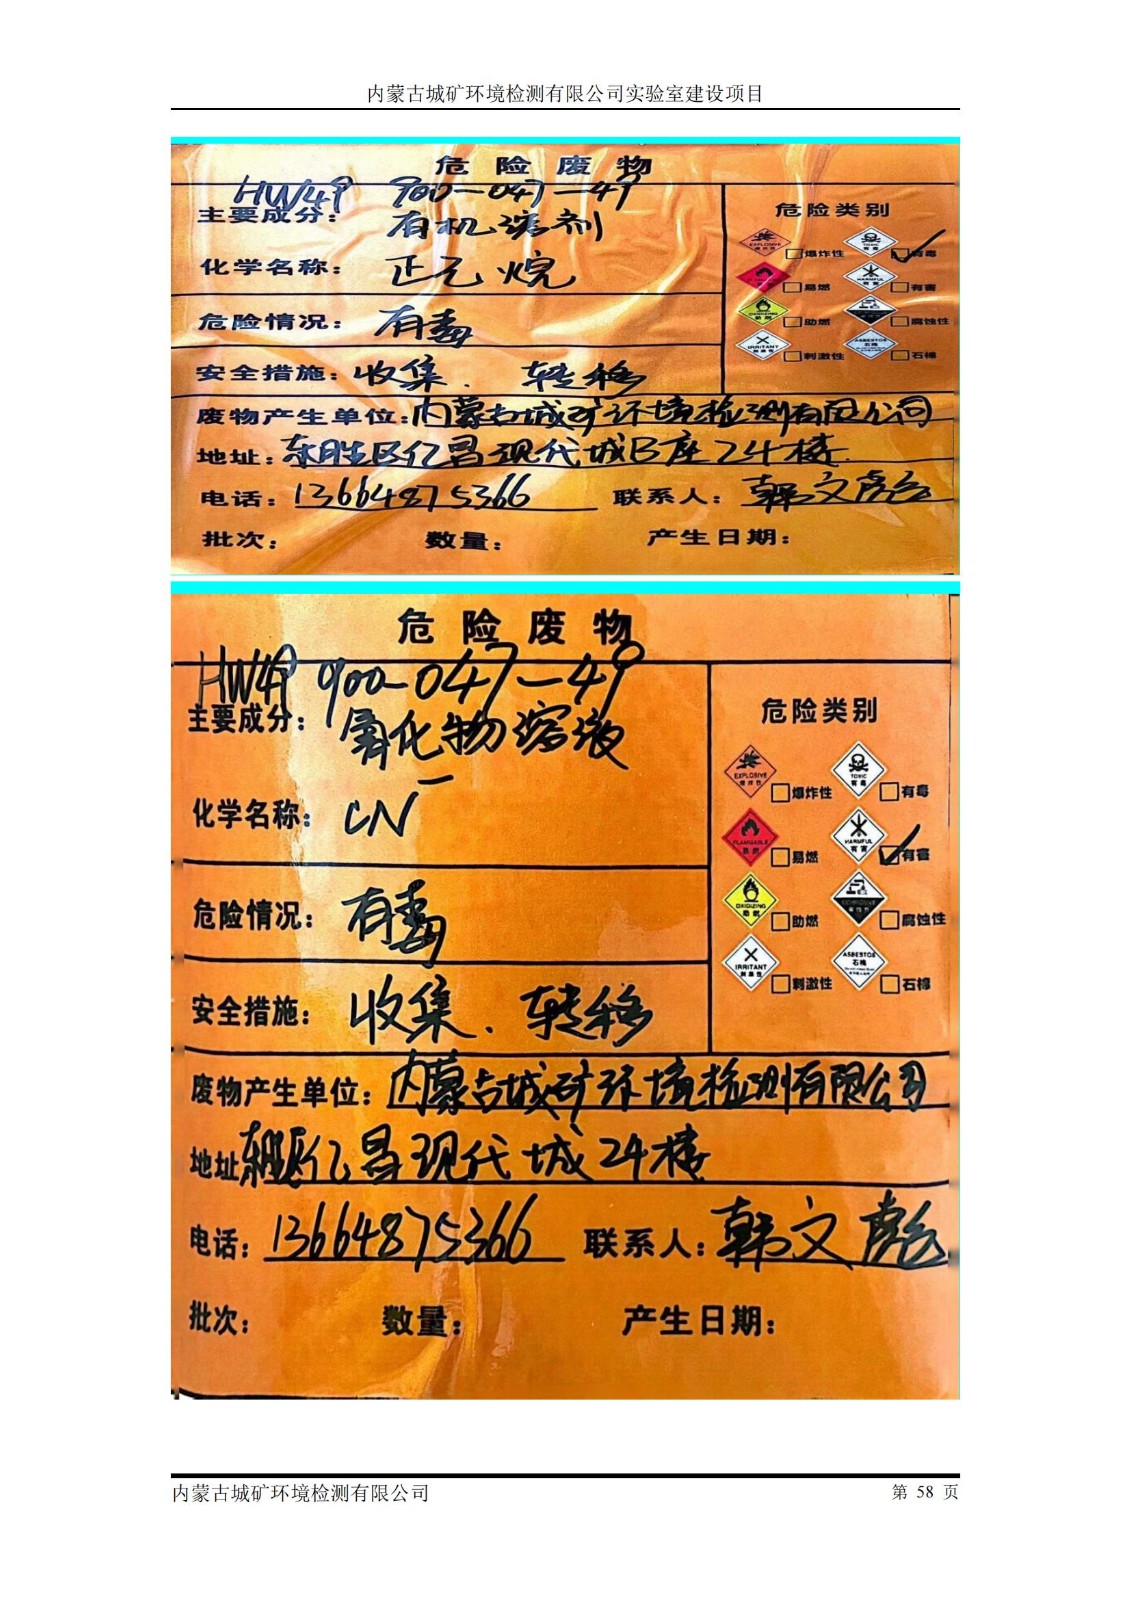 内蒙古城矿环境检测有限公司实验室建设项目
危 险 废 物
HW49 900-047-49
主要成分: 有机溶剂
危险类别
化学名称: 正己烷
EXPLOSIVE 爆炸性 TOXIC 有毒 ✓
易燃 HARMFUL 有害
危险情况: 有毒
OXIDIZING 助燃 腐蚀性
IRRITANT 刺激性 ASBESTOS 石棉 石棉
安全措施: 收集、转移
废物产生单位: 内蒙古城矿环境检测有限公司
地址: 东胜区亿昌现代城B座24楼
电话: 13664875366 联系人: 韩文彪
批次: 数量: 产生日期:
危 险 废 物
HW49 900-047-49
主要成分: 氰化物溶液
危险类别
化学名称: CN⁻
EXPLOSIVE 爆炸性 TOXIC 有毒 有毒
FLAMMABLE 易燃 易燃 HARMFUL 有害 ✓有害
危险情况: 有毒
OXIDIZING 助燃 助燃 腐蚀性
IRRITANT 刺激性 刺激性 ASBESTOS 石棉 石棉
安全措施: 收集、转移
废物产生单位: 内蒙古城矿环境检测有限公司
地址 东胜区亿昌现代城24楼
电话: 13664875366 联系人: 韩文彪
批次: 数量: 产生日期:
内蒙古城矿环境检测有限公司 第 58 页